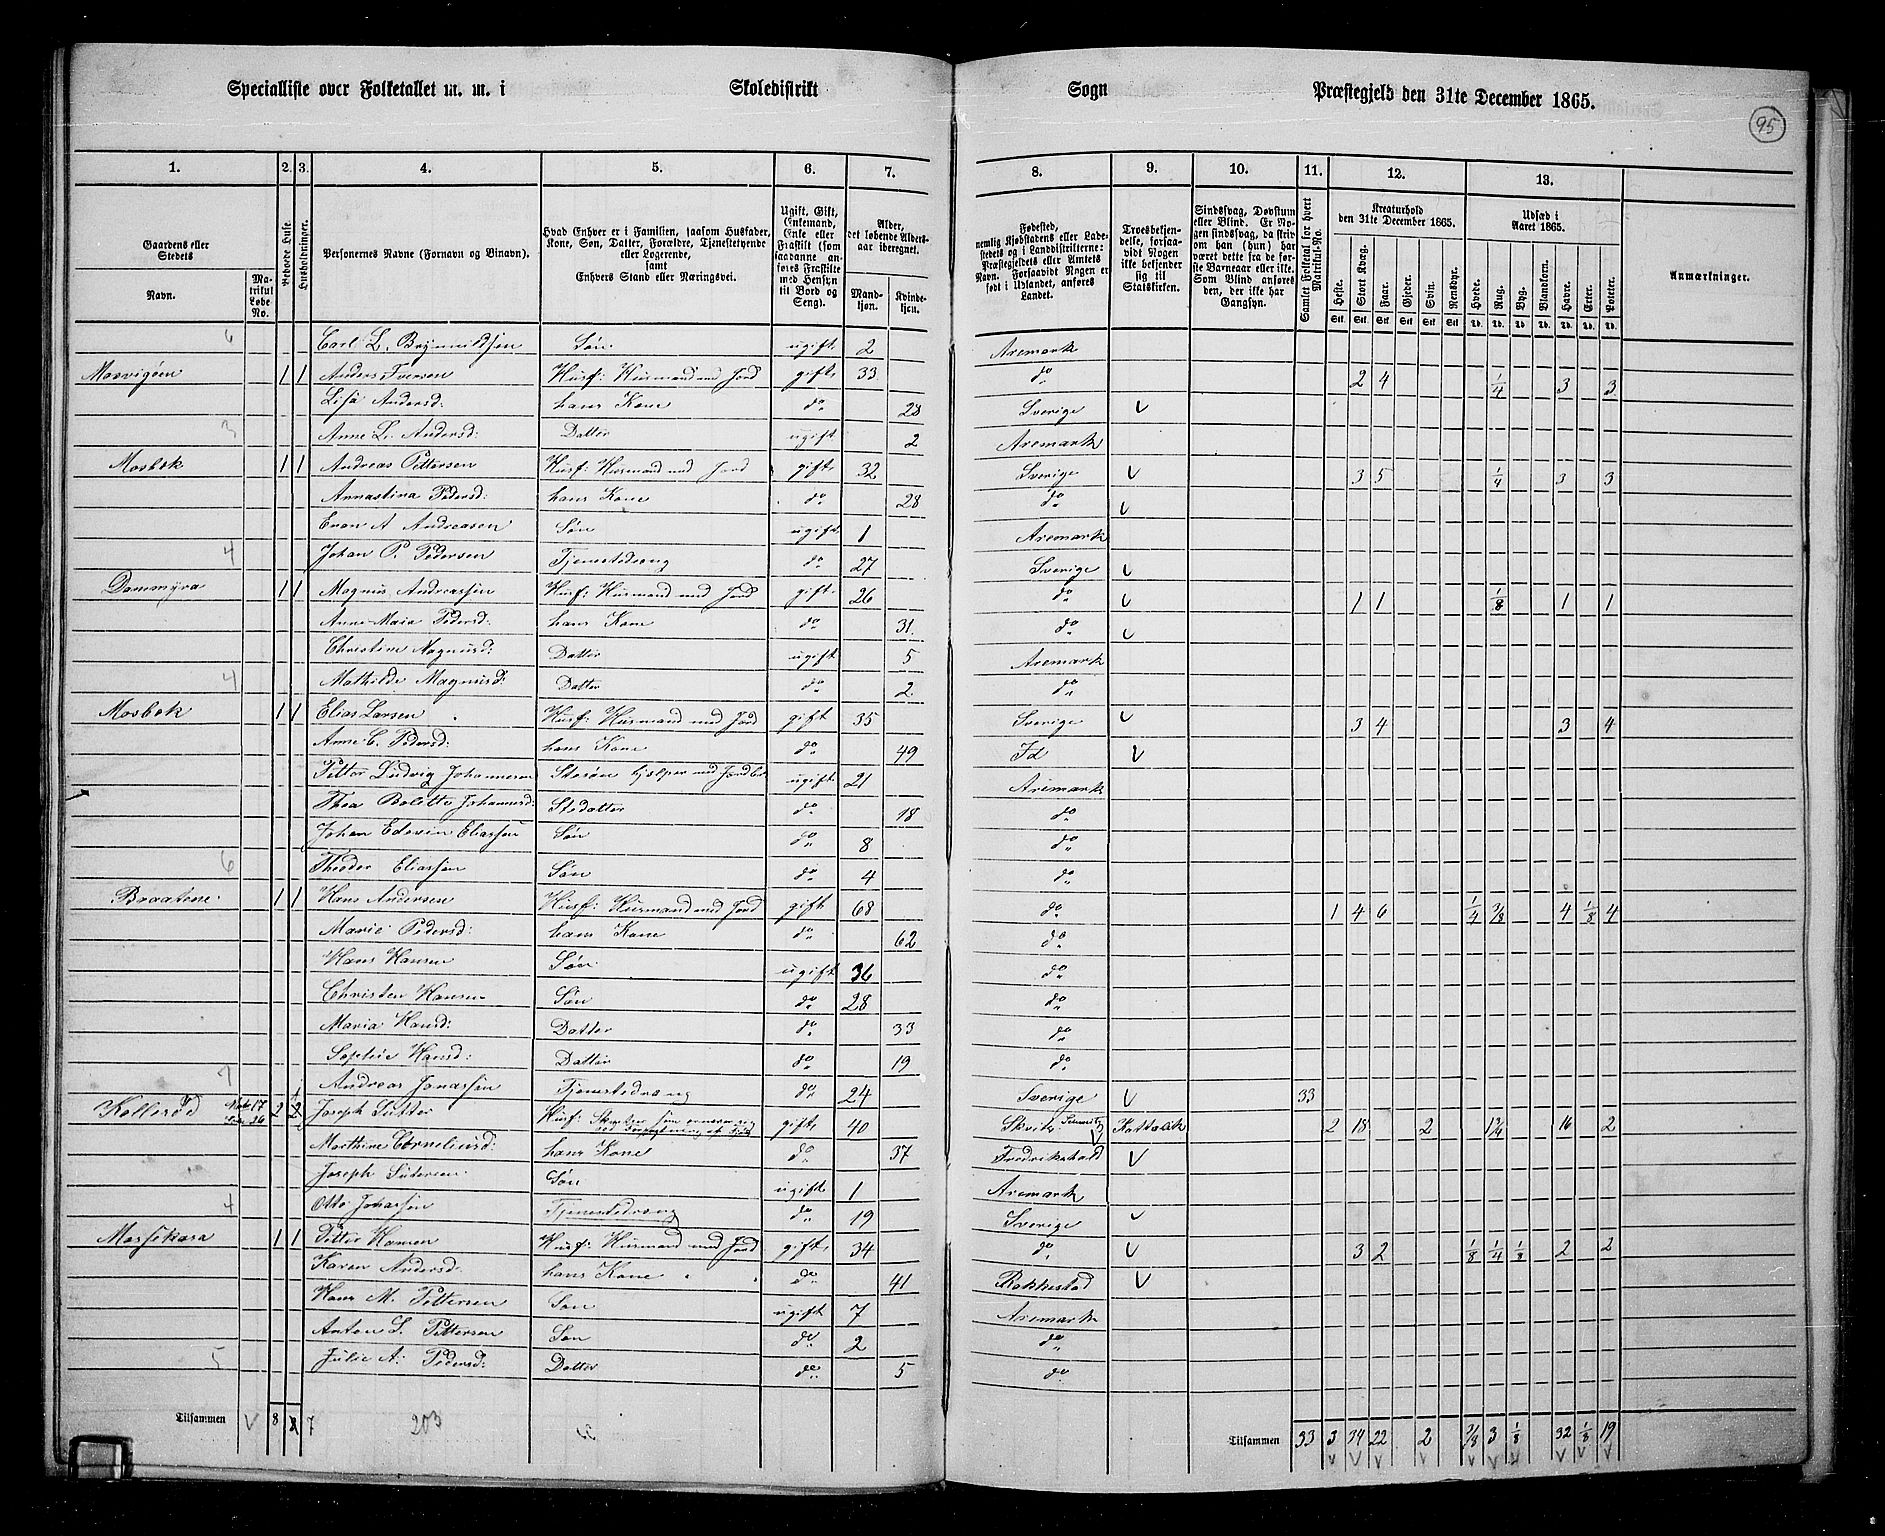 Specialliste over Folketallet m. m. i Skoledistrikt Sogn Præstegjeld den 31te December 1865.
95
1. 2. 3. 4. 5. 6. 7. 8. 9. 10. 11. 12. 13.
Gaardens eller Stedets Navn. Matrikul Løbe No. Beboede Huse. Husholdninger. Personernes Navne (Fornavn og Binavn). Hvad Enhver er i Familien, saasom Husfader, Kone, Søn, Datter, Forældre, Tjenestetyende eller Logerende, samt Enhvers Stand eller Næringsvei. Ugift, Gift, Enkemand, Enke eller Fraskilt (som saadanne anføres Fraskilte med Hensyn til Bord og Seng). Alder, det løbende Aldersaar iberegnet. Mandkjøn. Kvindekjøn. Fødested, nemlig Kjøbstadens eller Ladestedets og i Landdistrikterne Præstegjeldets eller Amtets Navn. Forsaavidt Nogen er født i Udlandet, anføres Landet. Troesbekjendelse, forsaavidt Nogen ikke bekjender sig til Statskirken. Sindssvag, Døvstum eller Blind. Er Nogen sindssvag, da skriv om han (hun) har været dette fra de første Barneaar eller ikke. Som Blind anføres den, der ikke har Gangsyn. Samlet Folketal for hvert Matrikul No. Kreaturhold den 31te December 1865. Heste. Stort Kvæg. Faar. Gjeder. Svin. Rensdyr. Udsæd i Aaret 1865. Hvede. Rug. Byg. Blandkorn. Havre. Erter. Poteter. Anmærkninger.
6 Carl L. Brynnildsen Søn ugift 2 Aremark
Mosvigen 1 1 Anders Iversen Husf: Husmand med Jord gift 33 do 2 4 1/4 3 3
Lisa Andersd. hans Kone do 28 Sverige
3 Anne L. Andersd: Datter ugift 2 Aremark
Mosbæk 1 1 Andreas Pettersen Husf: Husmand med Jord gift 32 Sverige 3 5 1/4 3 3
Annastina Pedersd: hans Kone do 28 do
Evan A Andreasen Søn ugift 1 Aremark
4 Johan P. Pedersen Tjenestedreng do 27 Sverige
Dammyra 1 1 Magnus Andreassen Husf: Husmand med Jord gift 26 do 1 1 1/8 1 1
Anne Maia Pedersd: hans Kone do 31 do
Christine Magnusd: Datter ugift 5 Aremark
4 Mathilde Magnusd: Datter do 2 do
Mosbek 1 1 Elias Larsen Husf: Husmand med Jord gift 35 Sverige 3 4 3 4
Anne C. Pedersd: hans Kone do 49 Id
Petter Ludvig Johannesen Stesøn hjælper med Jordbr ugift 21 Aremark
Thea Bolette Johannesd: Stedatter do 18 do
Johan Edevin Eliassen Søn do 8 do
6 Theodor Eliassen Søn do 4 do
Braatene 1 1 Hans Andersen Husf: Husmand med Jord gift 68 do 1 4 6 1/4 3/8 4 1/8 4
Marie Pedersd: hans Kone do 62 do
Hans Hansen Søn ugift 36 do
Christen Hansen Søn do 28 do
Maria Hansd: Datter do 33 do
Sophie Hansd: Datter do 19 do
7 Andreas Jonassen Tjenestedreng do 24 Sverige 33
Kollerød 17 36 2 2 Joseph Sutter Husf: gift 40 Katholik 2 18 2 1 3/4 16 2
Marthine Corneliusd: hans Kone do 37 Fredrikshald
Joseph Suteren Søn ugift 1 Aremark
4 Otto Johassen Tjenestedreng do 19 Sverige
Mossekasa 1 1 Petter Hansen Husf: Husmand med Jord gift 34 do 3 2 1/8 1/4 1/8 2 2
Karen Andersd hans Kone do 41 Rakkestad
Hans M. Pettersen Søn ugift 7 Aremark
Anton L. Pettersen Søn do 2 do
5 Julie A. Pedersd: Datter do 5 do
Tilsammen 8 7 203 Tilsammen 33 3 34 22 2 7/8 3 1/8 32 1/8 19